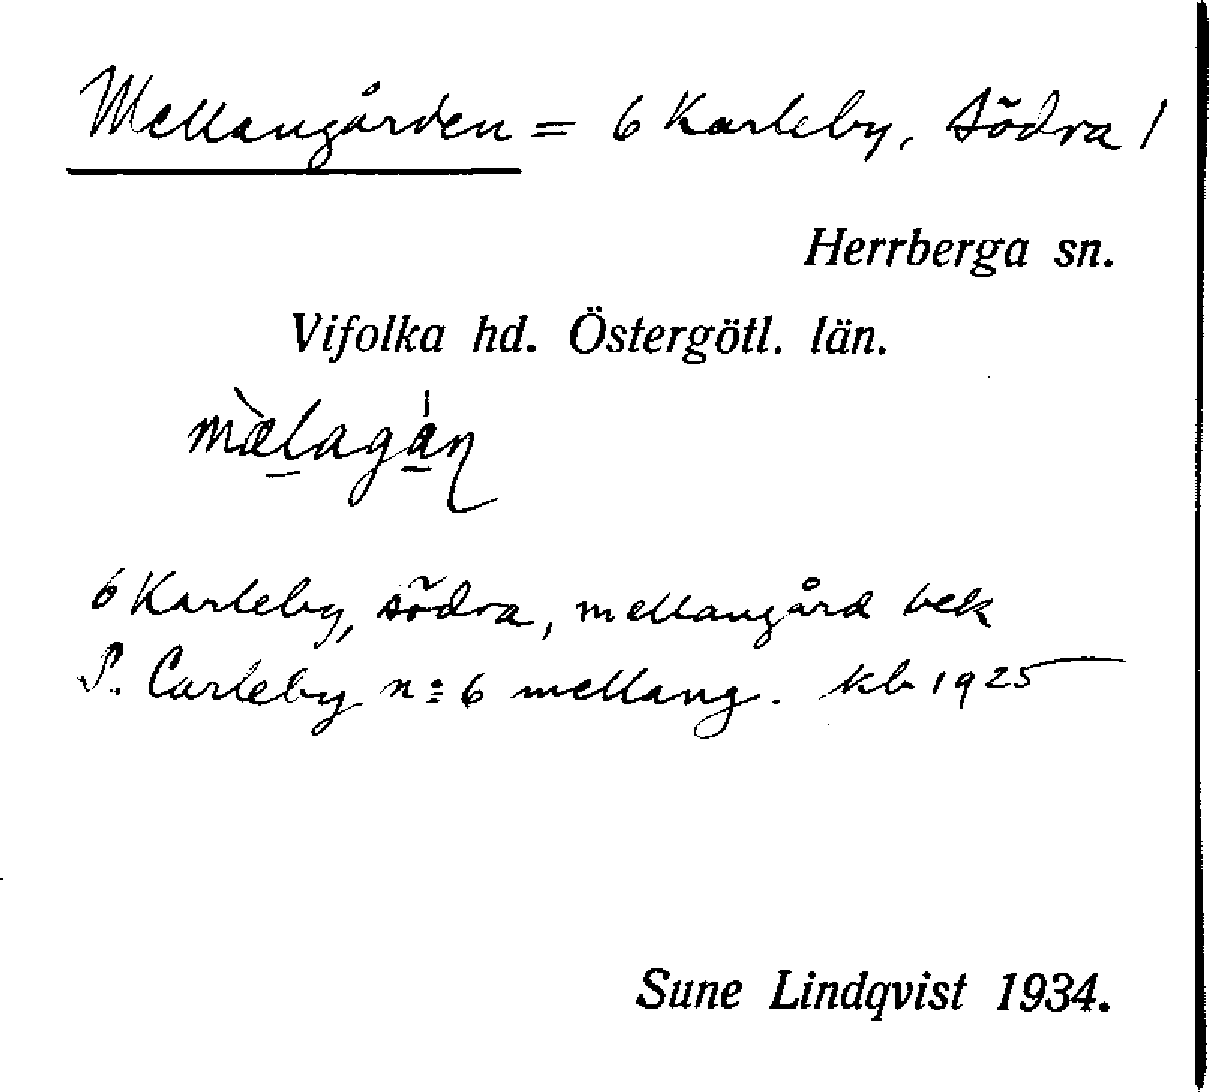 Mellangården = 6 Karleby, Södra /
Herrberga sn.
Vifolka hd. Östergötl. län.
mæ̀lagán
6 Karleby, södra, mellangård bek
S. Carleby n:6 mellang. kb 1925
Sune Lindqvist 1934.